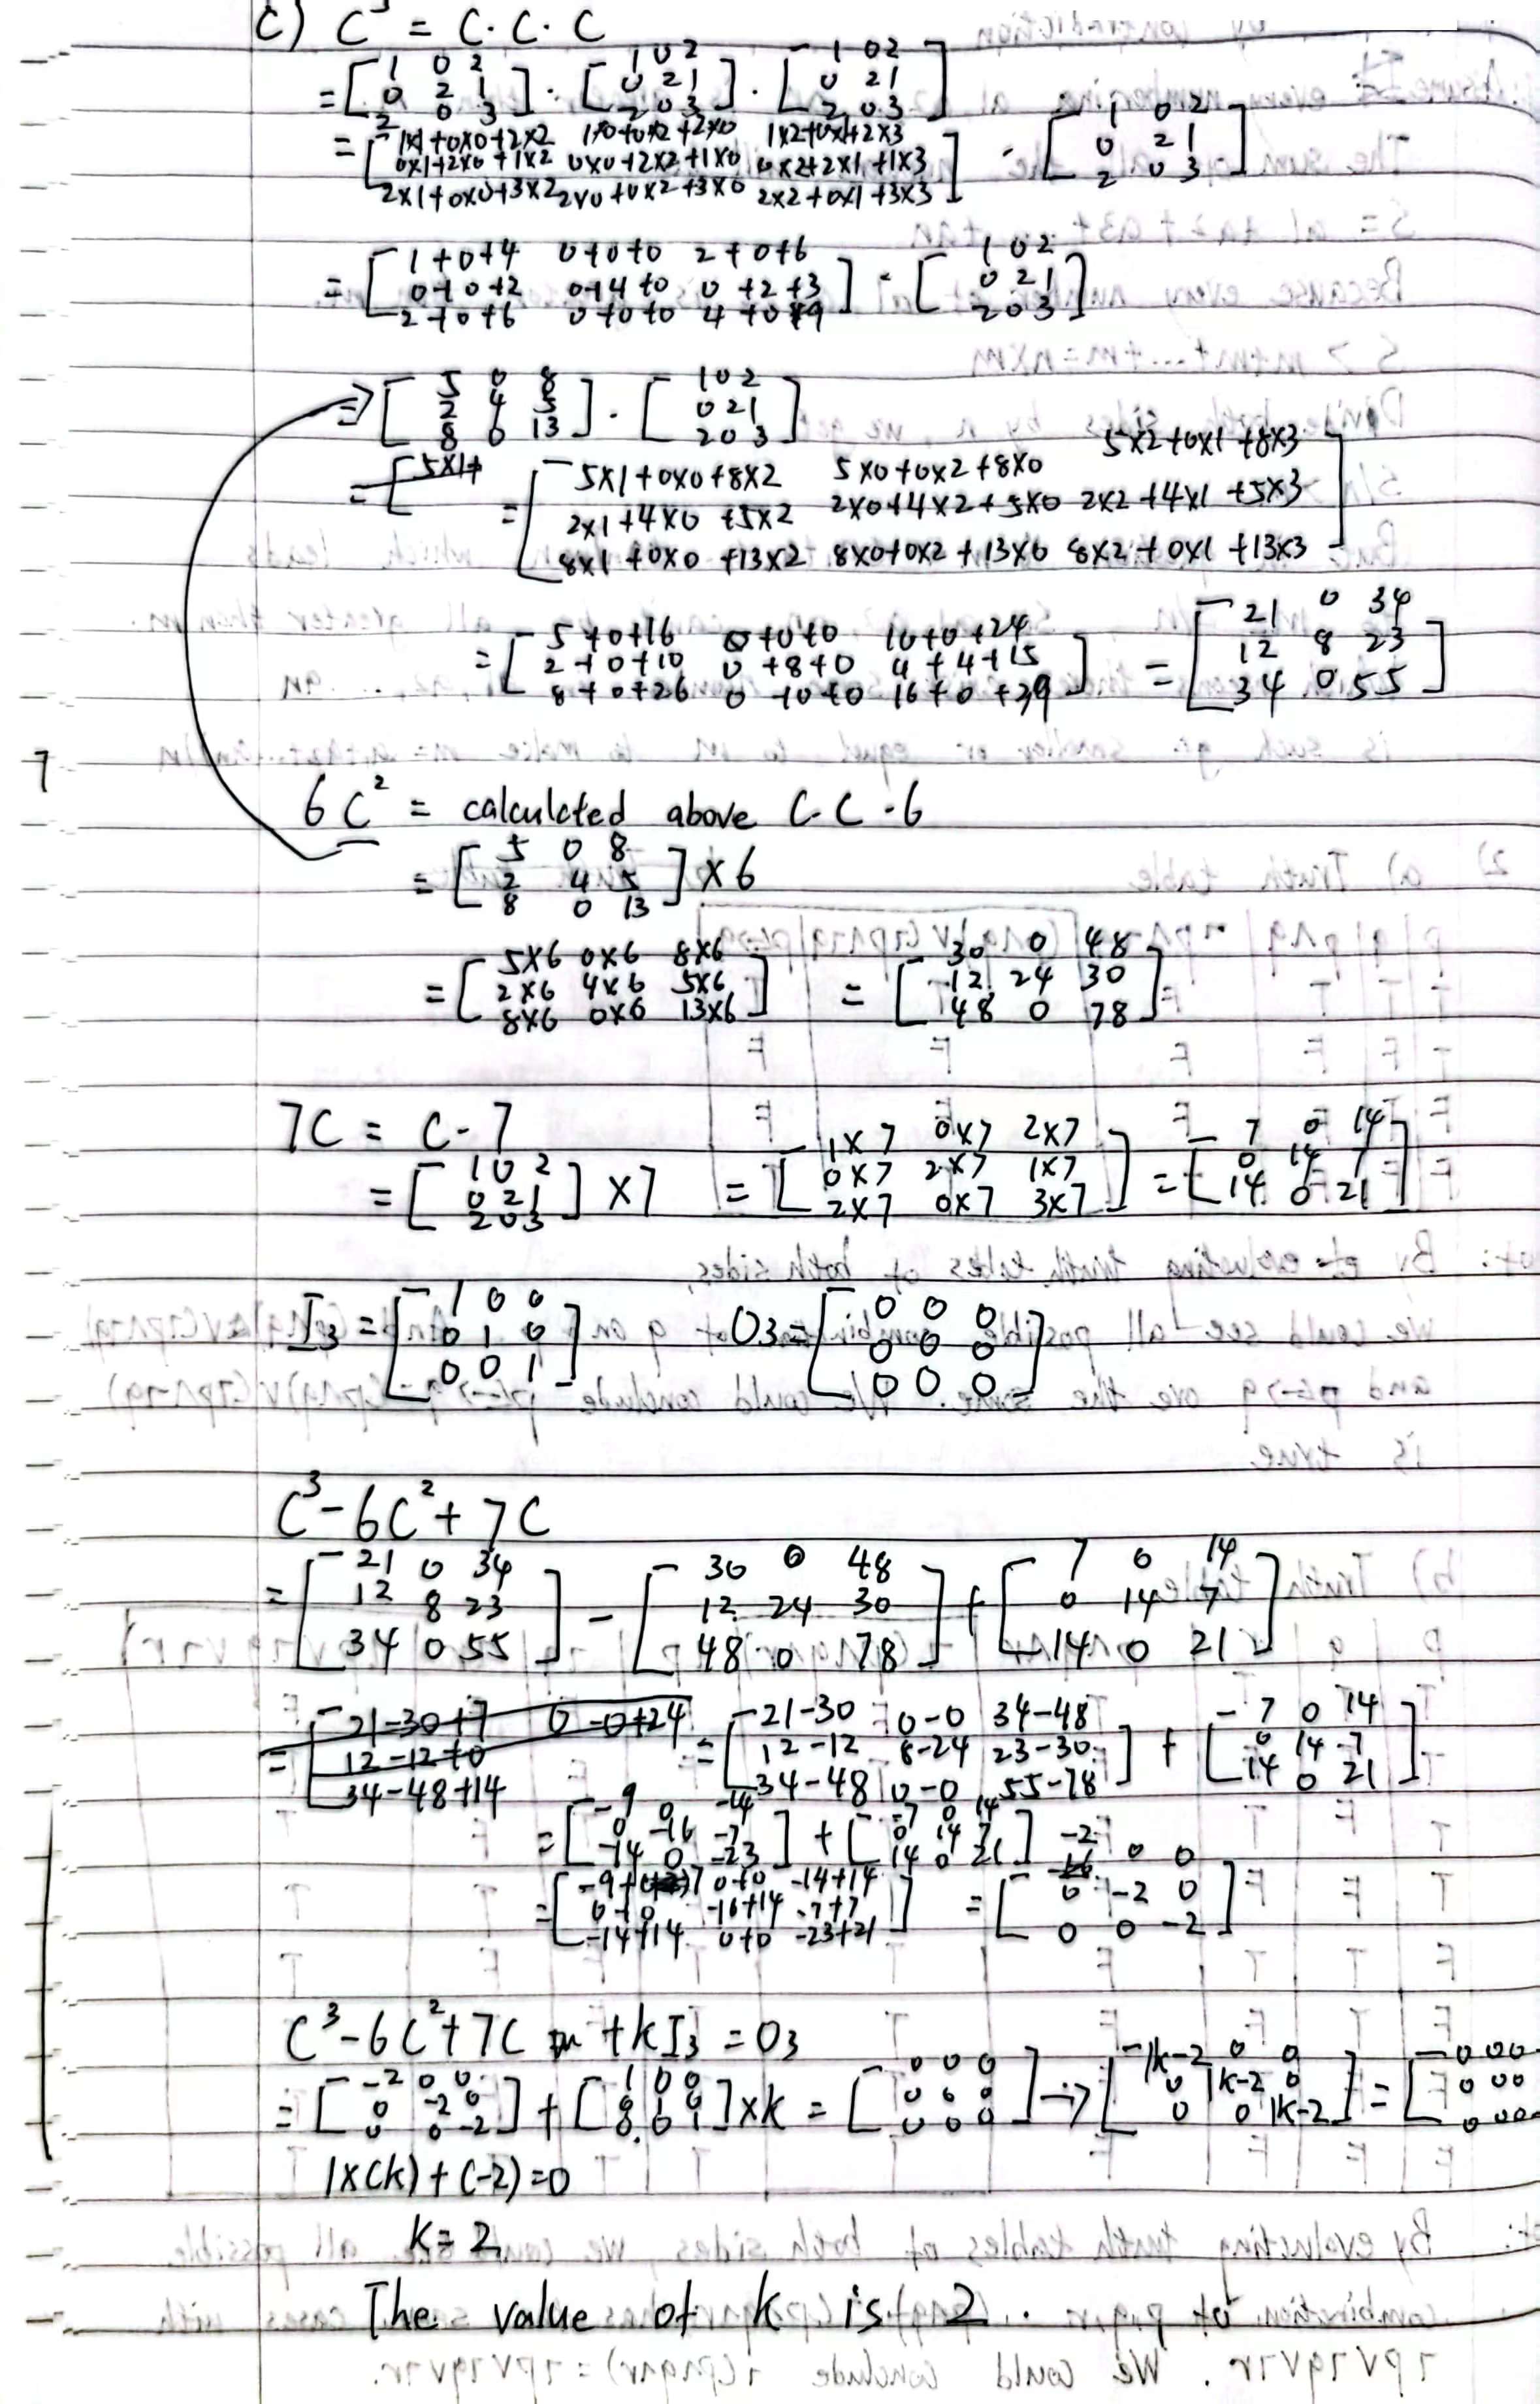 c) C³ = C. C. C
= [1 0 2 0 2 1 2 0 3] . [1 0 2 0 2 1 2 0 3] . [1 0 2 0 2 1 2 0 3]
= [1x1+0x0+2x2 1x0+0x2+2x0 1x2+0x1+2x3
0x1+2x0+1x2 0x0+2x2+1x0 0x2+2x1+1x3
2x1+0x0+3x2 2x0+0x2+3x0 2x2+0x1+3x3] . [1 0 2 0 2 1 2 0 3]
= [1+0+4 0+0+0 2+0+6
0+0+2 0+4+0 0+2+3
2+0+6 0+0+0 4+0+9] . [1 0 2 0 2 1 2 0 3]
= [5 0 8 2 4 5 8 0 13] . [1 0 2 0 2 1 2 0 3]
= [5x1+
= [5x1+0x0+8x2 5x0+0x2+8x0 5x2+0x1+8x3
2x1+4x0+5x2 2x0+4x2+5x0 2x2+4x1+5x3
8x1+0x0+13x2 8x0+0x2+13x0 8x2+0x1+13x3]
= [5+0+16 0+0+0 10+0+24
2+0+10 0+8+0 4+4+15
8+0+26 0+0+0 16+0+39] = [21 0 34 12 8 23 34 0 55]
6C² = calculated above C.C.6
= [5 0 8 2 4 5 8 0 13] x6
= [5x6 0x6 8x6
2x6 4x6 5x6
8x6 0x6 13x6] = [30 0 48 12 24 30 48 0 78]
7C = C-7
= [1 0 2 0 2 1 2 0 3] x7 = [1x7 0x7 2x7 0x7 2x7 1x7 2x7 0x7 3x7] = [7 0 14 0 14 7 14 0 21]
I3 = [1 0 0 0 1 0 0 0 1] O3 = [0 0 0 0 0 0 0 0 0]
C³-6C²+7C
= [21 0 34 12 8 23 34 0 55] - [30 0 48 12 24 30 48 0 78] + [7 0 14 0 14 7 14 0 21]
= [21-30+7 0-0+24
12-12+0
34-48+14
= [21-30 0-0 34-48
12-12 8-24 23-30
34-48 0-0 55-78] + [7 0 14 0 14 7 14 0 21]
= [-9 0 -14 0 -16 -7 -14 0 -23] + [7 0 14 0 14 7 14 0 21]
= [-9+7 0+0 -14+14
0+0 -16+14 -7+7
-14+14 0+0 -23+21] = [-2 0 0 0 -2 0 0 0 -2]
C³-6C²+7C +kI3 = O3
= [-2 0 0 0 -2 0 0 0 -2] + [1 0 0 0 1 0 0 0 1] xk = [0 0 0 0 0 0 0 0 0] → [1k-2 0 0 0 1k-2 0 0 0 1k-2] = [0 0 0 0 0 0 0 0 0]
1x(k)+(-2)=0
k=2
The value of k is 2.